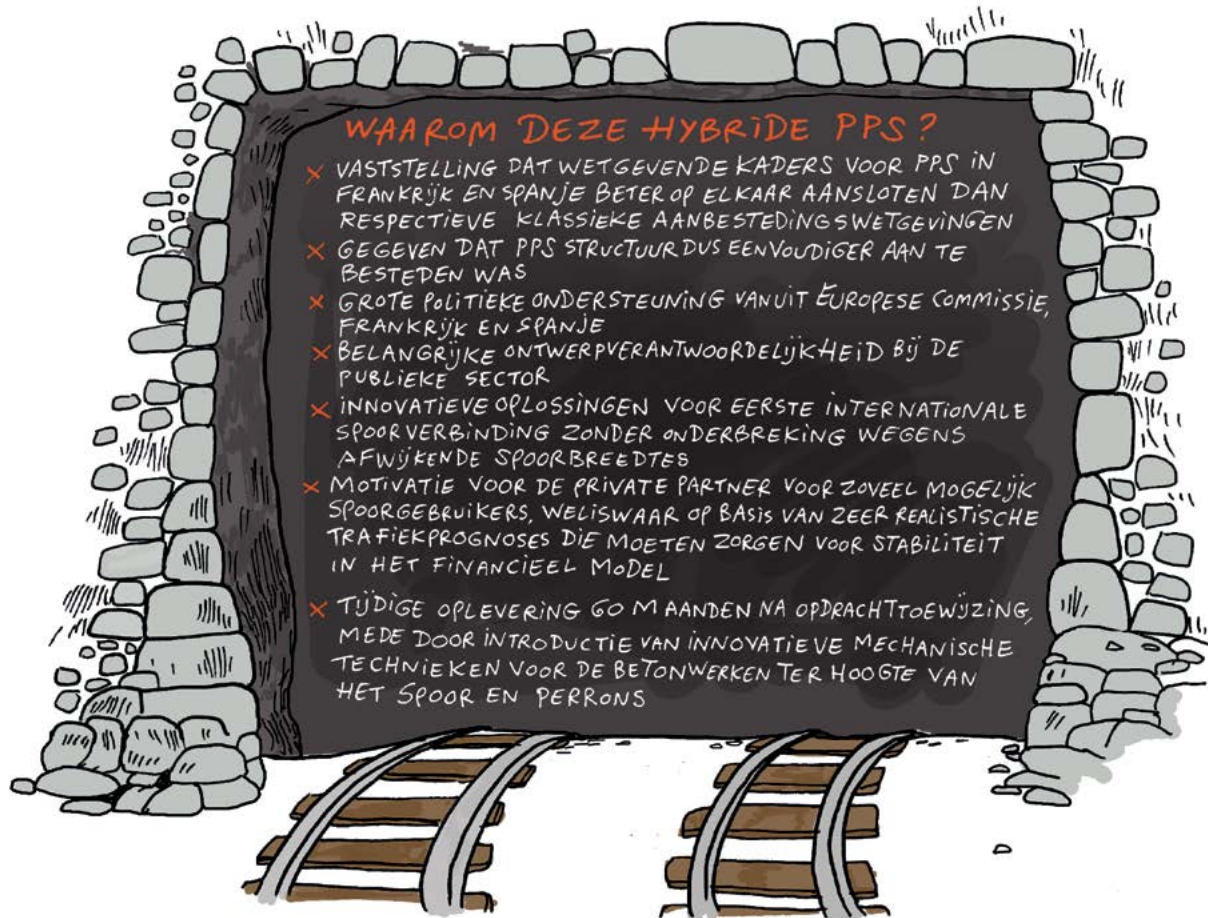 WAAROM DEZE HYBRIDE PPS?
× VASTSTELLING DAT WETGEVENDE KADERS VOOR PPS IN
FRANKRIJK EN SPANJE BETER OP ELKAAR AANSLOTEN DAN
RESPECTIEVE KLASSIEKE AANBESTEDINGSWETGEVINGEN
× GEGEVEN DAT PPS STRUCTUUR DUS EENVOUDIGER AAN TE
BESTEDEN WAS
× GROTE POLITIEKE ONDERSTEUNING VANUIT EUROPESE COMMISSIE,
FRANKRIJK EN SPANJE
× BELANGRIJKE ONTWERPVERANTWOORDELIJKHEID BIJ DE
PUBLIEKE SECTOR
× INNOVATIEVE OPLOSSINGEN VOOR EERSTE INTERNATIONALE
SPOORVERBINDING ZONDER ONDERBREKING WEGENS
AFWIJKENDE SPOORBREEDTES
× MOTIVATIE VOOR DE PRIVATE PARTNER VOOR ZOVEEL MOGELIJK
SPOORGEBRUIKERS, WELISWAAR OP BASIS VAN ZEER REALISTISCHE
TRAFIEKPROGNOSES DIE MOETEN ZORGEN VOOR STABILITEIT
IN HET FINANCIEEL MODEL
× TIJDIGE OPLEVERING 60 MAANDEN NA OPDRACHTTOEWIJZING,
MEDE DOOR INTRODUCTIE VAN INNOVATIEVE MECHANISCHE
TECHNIEKEN VOOR DE BETONWERKEN TER HOOGTE VAN
HET SPOOR EN PERRONS